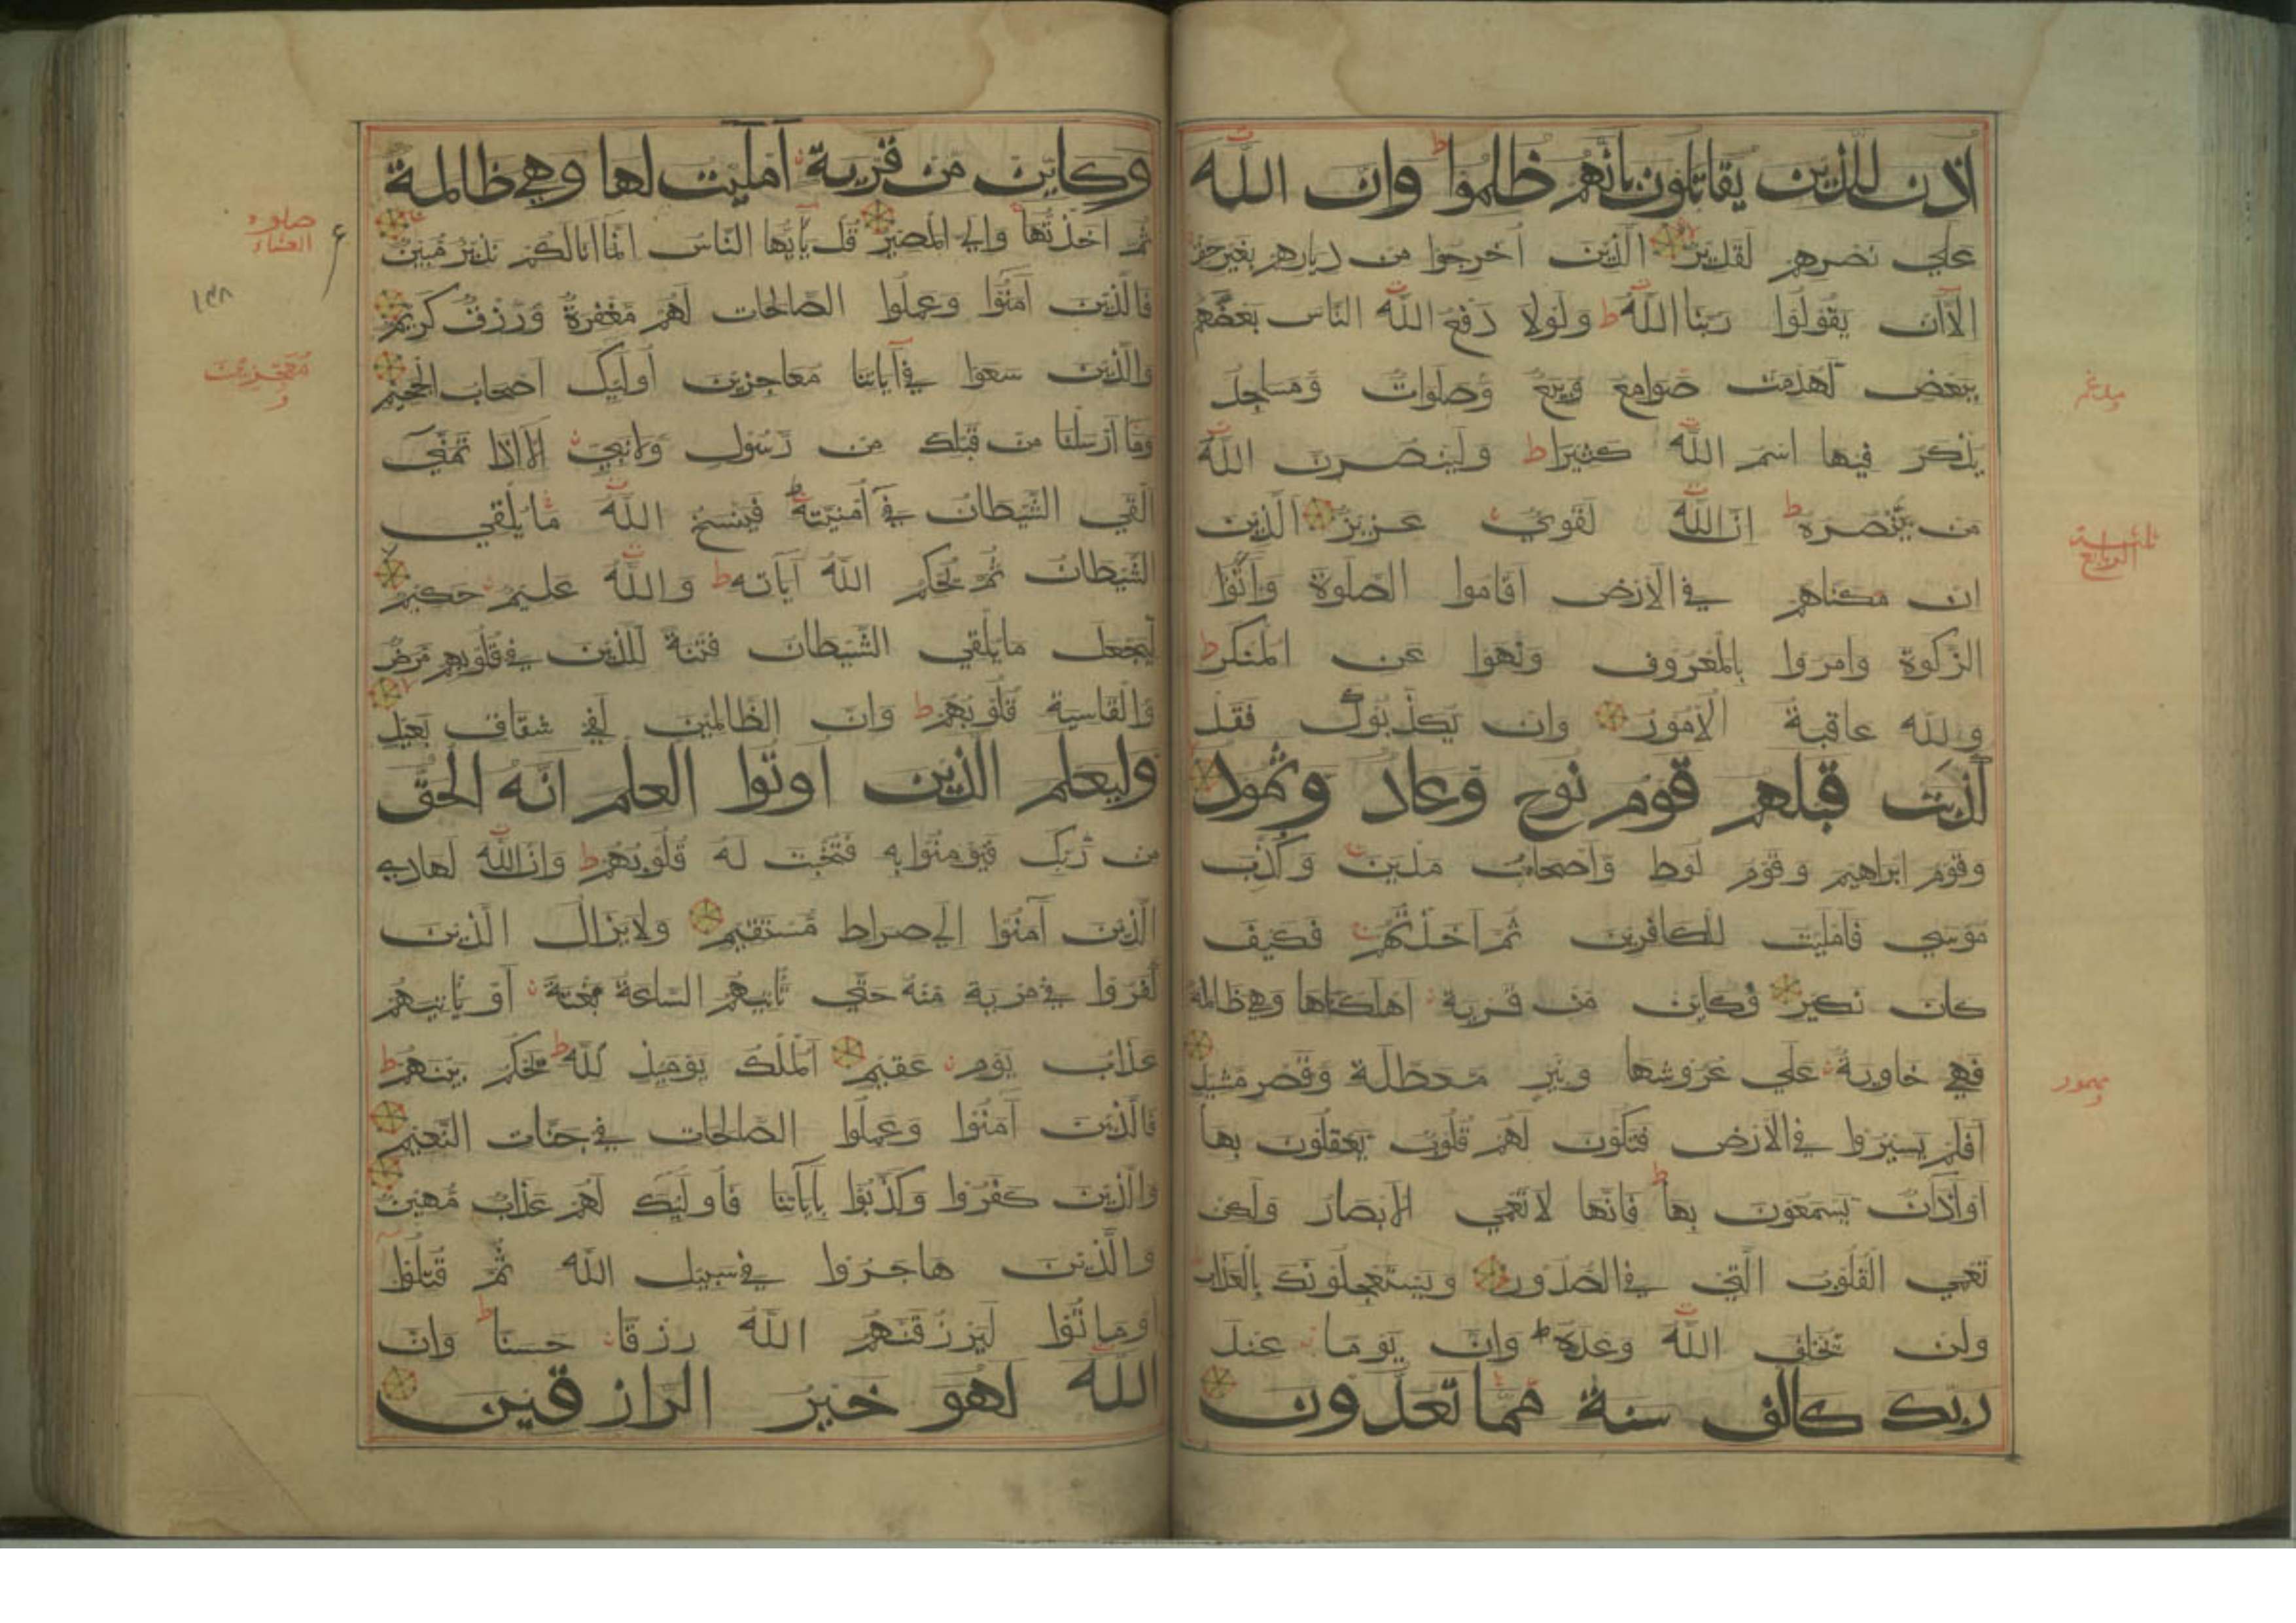 اذن للذين يقاتلون بانهم ظلموا وان الله
علي نصرهم لقدير الذين اخرجوا من ديارهم بغير حق
الا ان يقولوا ربنا الله ط ولولا دفع الله الناس بعضهم
ببعض لهدمت صوامع وبيع وصلوات ومساجد
يذكر فيها اسم الله كثيرا ط ولينصرن الله
من ينصره ط ان الله لقوي عزيز الذين
ان مكناهم في الارض اقاموا الصلوة واتوا
الزكوة وامروا بالمعروف ونهوا عن المنكر ط
ولله عاقبة الامور وان يكذبوك فقد
كذبت قبلهم قوم نوح وعاد وثمود
وقوم ابراهيم وقوم لوط واصحاب مدين وكذب
موسي فامليت للكافرين ثم اخذتهم فكيف
كان نكير فكاين من قرية اهلكناها وهي ظالمة
فهي خاوية علي عروشها وبير معطلة وقصر مشيد
افلم يسيروا في الارض فتكون لهم قلوب يعقلون بها
او اذان يسمعون بها ط فانها لا تعمي الابصار ولكن
تعمي القلوب التي في الصدور ويستعجلونك بالعذاب
ولن يخلف الله وعده ط وان يوما عند
ربك كالف سنة مما تعدون
وكاين من قرية امليت لها وهي ظالمة
ثم اخذتها والي المصير قل يا يها الناس انما انا لكم نذير مبين
فالذين آمنوا وعملوا الصالحات لهم مغفرة ورزق كريم
والذين سعوا في آياتنا معاجزين اوليك اصحاب الجحيم
وما ارسلنا من قبلك من رسول ولا نبي الا اذا تمني
القي الشيطان في امنيته ط فينسخ الله ما يلقي
الشيطان ثم يحكم الله آياته ط والله عليم حكيم
ليجعل ما يلقي الشيطان فتنة للذين في قلوبهم مرض
والقاسية قلوبهم ط وان الظالمين لفي شقاق بعيد
وليعلم الذين اوتوا العلم انه الحق
من ربك فيومنوا به فتخبت له قلوبهم ط وان الله لهادي
الذين آمنوا الي صراط مستقيم ولا يزال الذين
كفروا في مرية منه حتي تاتيهم الساعة بغتة او ياتيهم
عذاب يوم عقيم الملك يوميذ لله ط يحكم بينهم ط
فالذين آمنوا وعملوا الصالحات في جنات النعيم
والذين كفروا وكذبوا بآياتنا فاوليك لهم عذاب مهين
والذين هاجروا في سبيل الله ثم قتلوا
او ماتوا ليرزقنهم الله رزقا حسنا ط وان
الله لهو خير الرازقين
صلوة
العشاء
ع
معجزين